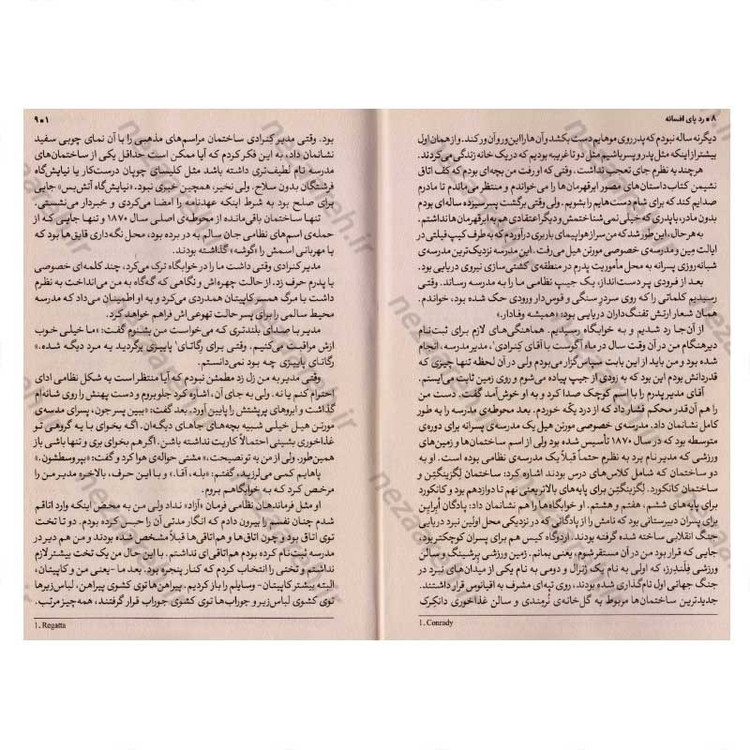 ۸ ● رد پای افسانه
دیگر نه ساله نبودم که پدر روی موهایم دست بکشد و آن‌ها را این ور و آن ور کند. و از همان اول
بیشتر از اینکه مثل پدر و پسر باشیم مثل دو تا غریبه بودیم که در یک خانه زندگی می‌کردند.
هر چند به نظرم جای تعجبی نداشت. وقتی که او رفت من بچه‌ای بودم که کف اتاق
نشیمن کتاب داستان‌های مصور ابرقهرمان‌ها را می‌خواندم و منتظر می‌ماندم تا مادرم
صدایم کند که برای شام دست‌هایم را بشویم. ولی وقتی برگشت پسر سیزده ساله‌ای بودم
بدون مادر، با پدری که خیلی نمی‌شناختمش و دیگر اعتقادی هم به ابرقهرمان‌ها نداشتم.
به هر حال، این طور شد که من سر از هواپیمای باربری درآوردم که به طرف کیپ فیلتی در
ایالت مِین و مدرسه‌ی خصوصی مورتن هیل می‌رفت. این مدرسه نزدیک‌ترین مدرسه‌ی
شبانه‌روزی پسرانه به محل مأموریت پدرم در منطقه‌ی کشتی‌سازی نیروی دریایی بود.
بعد از فرودی پر دست‌انداز، یک جیپ نظامی ما را به مدرسه رساند. وقتی
رسیدیم کلماتی را که روی سردر سنگی و قوس‌دار ورودی حک شده بود، خواندم.
همان شعار ارتش تفنگداران دریایی بود: «همیشه وفادار.»
از آن‌جا رد شدیم و به خوابگاه رسیدیم. هماهنگی‌های لازم برای ثبت‌نام
دیرهنگام من در آن وقت سال در ماه آگوست با آقای کنرادی¹، مدیر مدرسه، انجام
شده بود و من باید از این بابت سپاس‌گزار می‌بودم ولی در آن لحظه تنها چیزی که
قدردانش بودم این بود که به زودی از جیپ پیاده می‌شوم و روی زمین ثابت می‌ایستم.
آقای مدیر پدرم را با اسم کوچک صدا کرد و به او خوش‌آمد گفت. دست من
را هم آن‌قدر محکم فشار داد که از درد یکّه خوردم. بعد محوطه‌ی مدرسه را به طور
کامل نشانمان داد. مدرسه‌ی خصوصی مورتن هیل یک مدرسه‌ی پسرانه برای دوره‌ی
متوسطه بود که در سال ۱۸۷۰ تأسیس شده بود ولی از اسم ساختمان‌ها و زمین‌های
ورزشی که مدیر نام برد به نظرم حتماً قبلاً یک مدرسه‌ی نظامی بوده است. او به
دو ساختمان که شامل کلاس‌های درس بودند اشاره کرد: ساختمان لگزینگتن و
ساختمان کانکورد. لگزینگتن برای پایه‌های بالاتر یعنی نهم تا دوازدهم بود و کانکورد
برای پایه‌های ششم، هفتم و هشتم. او خوابگاه‌ها را هم نشانمان داد: پادگان اُبراین
برای پسران دبیرستانی بود که نامش را از پادگانی که در نزدیکی محل اولین نبرد دریایی
جنگ انقلابی ساخته شده گرفته بودند. اردوگاه کیس هم برای پسران کوچکتر بود:
جایی که قرار بود من در آن مستقر شوم، یعنی بمانم. زمین ورزشی پرشینگ و سالن
ورزشی فلندرز، که اولی به نام یک ژنرال و دومی به نام یکی از میدان‌های نبرد در
جنگ جهانی اول نام‌گذاری شده بودند، روی تپه‌ای مشرف به اقیانوس قرار داشتند.
جدیدترین ساختمان‌ها مربوط به گل‌خانه‌ی نُرمندی و سالن غذاخوری دانکرک
1. Conrady
۹ ● ۱
بود. وقتی مدیر کنرادی ساختمان مراسم‌های مذهبی را با آن نمای چوبی سفید
نشانمان داد، به این فکر کردم که آیا ممکن است حداقل یکی از ساختمان‌های
مدرسه نام لطیف‌تری داشته باشد مثل کلیسای چوپان درست‌کار یا نیایشگاه
فرشتگان بدون سلاح. ولی نخیر، همچین خبری نبود. «نیایشگاه آتش‌بس» جایی
برای صلح بود به شرط اینکه عهدنامه را امضا می‌کردی و خبردار می‌نشستی.
تنها ساختمان باقی‌مانده از محوطه‌ی اصلی سال ۱۸۷۰ و تنها جایی که از
حمله‌ی اسم‌های نظامی جان سالم به در برده بود، محل نگه‌داری قایق‌ها بود که
با مهربانی اسمش را «گوشه» گذاشته بودند.
مدیر کنرادی وقتی داشت ما را در خوابگاه ترک می‌کرد، چند کلمه‌ای خصوصی
با پدرم حرف زد. از حالت چهره‌اش و نگاهی که گه‌گاه به من می‌انداخت به نظرم
داشت با مرگ همسر کاپیتان همدردی می‌کرد و به او اطمینان می‌داد که مدرسه
محیط سالمی را برای پسر حالت تهوعی‌اش فراهم خواهد کرد.
مدیر با صدای بلندتری که می‌خواست من بشنوم گفت: «ما خیلی خوب
ازش مراقبت می‌کنیم. وقتی برای رگاتای¹ پاییزی برگردید یه مرد دیگه شده.»
رگاتای پاییزی چه بود نمی‌دانستم.
وقتی مدیر به من زل زد مطمئن نبودم که آیا منتظر است به شکل نظامی ادای
احترام کنم یا نه. ولی به جای آن، اشاره کرد جلو بروم و دست پهنش را روی شانه‌ام
گذاشت و ابروهای پرپشتش را پایین آورد. بعد گفت: «ببین پسر جون، پسرای مدسه‌ی
مورتن هیل خیلی شبیه بچه‌های جاهای دیگه‌ان. اگه بخوای با یه گروهی تو
غذاخوری بشینی احتمالاً کاریت نداشته باشن. اگر هم بخوای بری و تنهایی باشی باز
همین‌طور. ولی از من به تو نصیحت،» مشتی حواله‌ی هوا کرد و گفت: «بپر وسطشون.»
پاهایم کمی می‌لرزید، گفتم: «بله، آقا.» و با این حرف، بالاخره مدیر من را
مرخص کرد که به خوابگاهم بروم.
او مثل فرماندهان نظامی فرمان «آزاد» نداد ولی من به محض اینکه وارد اتاقم
شدم چنان نفسم را بیرون دادم که انگار مدتی آن را حبس کرده بودم. دو تا تخت
توی اتاق بود و چون اتاق‌ها و هم‌اتاقی‌ها قبلاً مشخص شده بودند و من هم دیر در
مدرسه ثبت‌نام کرده بودم هم‌اتاقی‌ای نداشتم. با این حال من یک تخت بیشتر لازم
نداشتم و تختی را انتخاب کردم که کنار پنجره بود. بعد ما -یعنی من و کاپیتان،
البته بیشتر کاپیتان- وسایلم را باز کردیم. پیراهن‌ها توی کشوی پیراهن، لباس‌زیرها
توی کشوی لباس‌زیر و جوراب‌ها توی کشوی جوراب قرار گرفتند، همه چیز مرتب.
1. Regatta
nezaazeh.ir